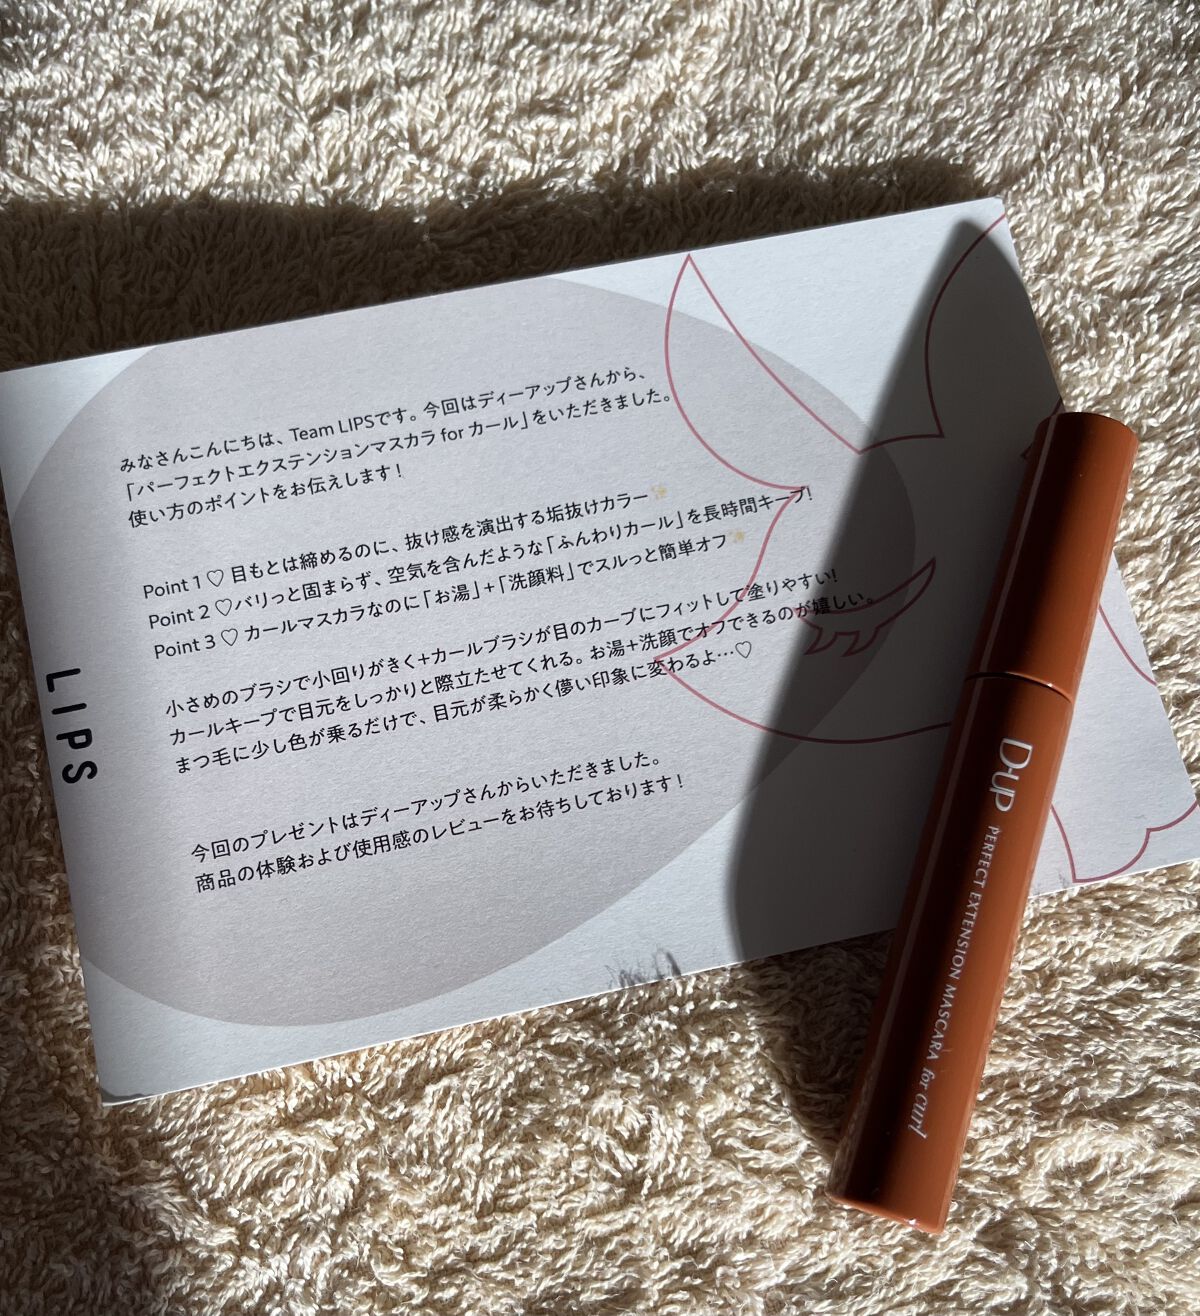 みなさんこんにちは、Team LIPSです。今回はディーアップさんから、
「パーフェクトエクステンションマスカラ for カール」をいただきました。
使い方のポイントをお伝えします！
Point 1 ♡ 目もとは締めるのに、抜け感を演出する垢抜けカラー✨
Point 2 ♡バリっと固まらず、空気を含んだような「ふんわりカール」を長時間キープ!
Point 3 ♡ カールマスカラなのに「お湯」+「洗顔料」でスルっと簡単オフ✨
小さめのブラシで小回りがきく+カールブラシが目のカーブにフィットして塗りやすい!
カールキープで目元をしっかりと際立たせてくれる。お湯+洗顔でオフできるのが嬉しい。
まつ毛に少し色が乗るだけで、目元が柔らかく儚い印象に変わるよ…♡
今回のプレゼントはディーアップさんからいただきました。
商品の体験および使用感のレビューをお待ちしております！
LIPS
D-UP PERFECT EXTENSION MASCARA for curl